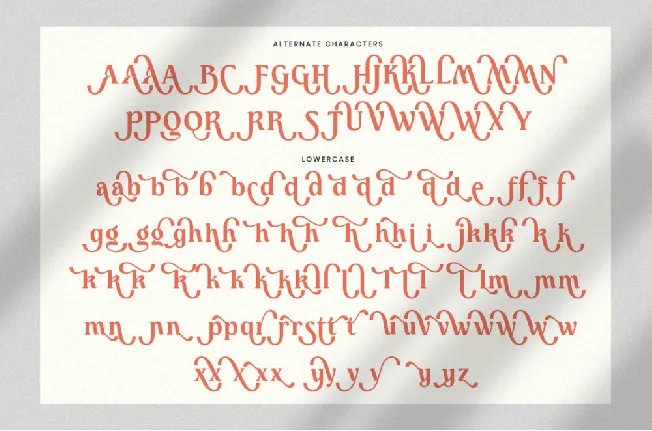 ALTERNATE CHARACTERS
AAAA BC FGGH HJKKLLMMMN
PPQQR RR STUVWWWXY
LOWERCASE
aab b b b bcd d d d d d d e fff f
gg gg ghhh h h h h hhi i jkkk k k
k k k k k k k kkll l l l l l lm mm
mn nn ppqr rrstt t uuvvwwww w
xx x xx yy y y y yz